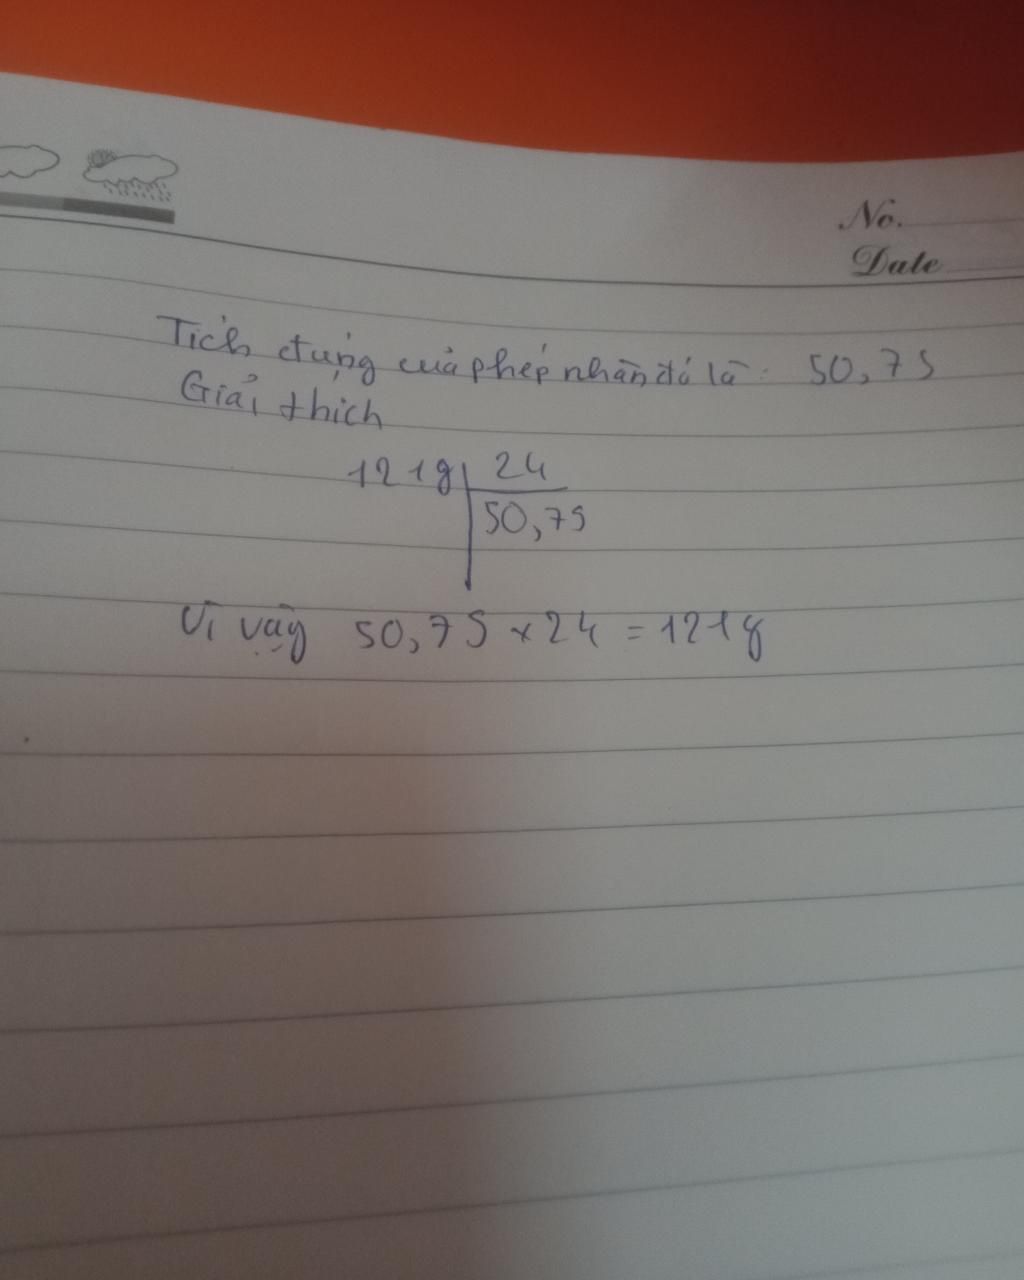 No.
Date
Tích đúng của phép nhân đó là: 50,75
Giải thích
1218 24
50,75
Vì vậy 50,75 x 24 = 1218